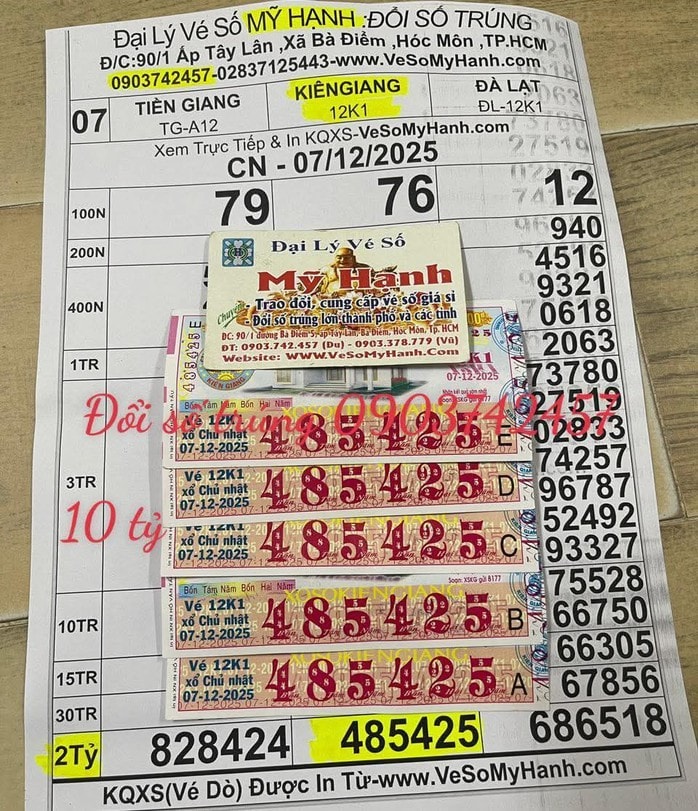 Đại Lý Vé Số MỸ HẠNH :ĐỔI SỐ TRÚNG
Đ/C:90/1 Ấp Tây Lân ,Xã Bà Điểm ,Hóc Môn ,TP.HCM
0903742457-02837125443-www.VeSoMyHanh.com
07
TIỀN GIANG
TG-A12
KIÊNGIANG
12K1
ĐÀ LẠT
ĐL-12K1
Xem Trực Tiếp & In KQXS-VeSoMyHanh.com
CN - 07/12/2025
100N 79 76 12
200N 940
400N 4516
9321
0618
1TR 2063
3TR 73780
27519
02833
74257
96787
52492
93327
10TR 75528
66750
15TR 66305
30TR 67856
2Tỷ 828424 485425 686518
KQXS(Vé Dò) Được In Từ-www.VeSoMyHanh.com
Đại Lý Vé Số
Mỹ Hạnh
Chuyên:
- Trao đổi, cung cấp vé số giá sỉ
- Đổi số trúng lớn,thành phố và các tỉnh
ĐC: 90/1 đường Bà Điểm 5, ấp Tây Lân, Bà Điểm, Hóc Môn, Tp. HCM
ĐT: 0903.742.457 (Du) - 0903.378.779 (Vũ)
Website: WWW.VeSoMyHanh.Com
485425 E
TIỀN GIANG
K1
07-12-2025
Bốn Tám Năm Bốn Hai Năm
Vé 12K1
xổ Chủ nhật
07-12-2025
485425 E
Vé 12K1
xổ Chủ nhật
07-12-2025
485425 D
Vé 12K1
xổ Chủ nhật
07-12-2025
485425 C
Soạn: XSKG gửi 8177
Bốn Tám Năm Bốn Hai Năm
XOSOKIENGIANG
Vé 12K1
xổ Chủ nhật
07-12-2025
485425 B
XOSOKIENGIANG
Vé 12K1
xổ Chủ nhật
07-12-2025
485425 A
Đổi số trúng 0903742457
10 tỷ